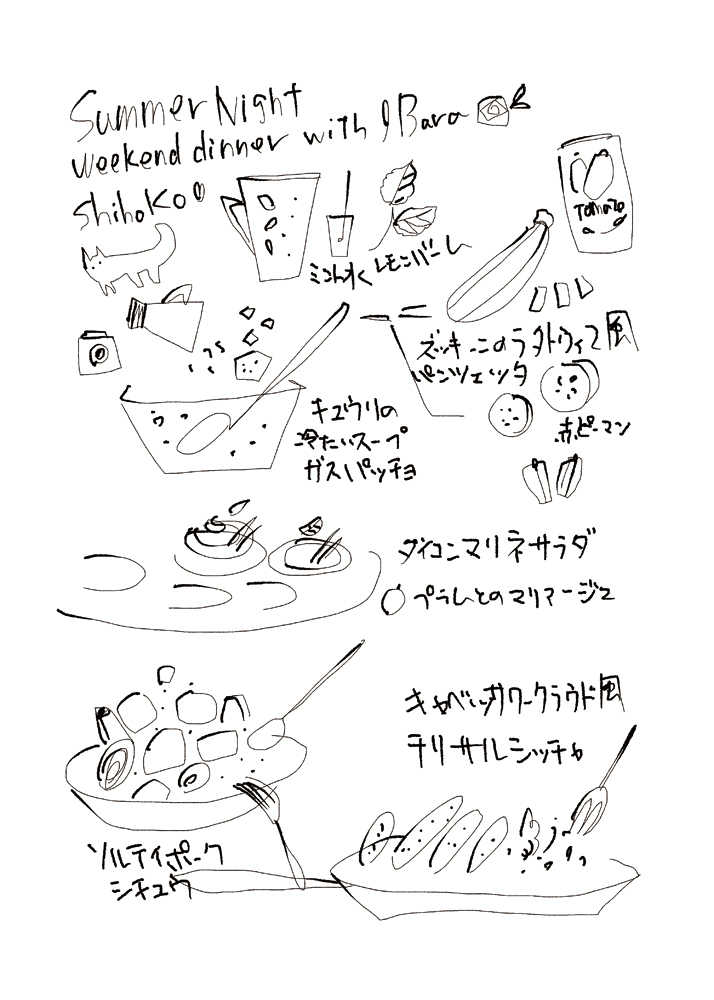 Summer Night
weekend dinner with Bara
shihoko
Tomato
ミント水 レモンバーム
ズッキーニのラタトゥイユ風
パンツェッタ
赤ピーマン
キュウリの
冷たいスープ
ガスパッチョ
ダイコンマリネサラダ
プラムとのマリアージュ
キャベツ ザワークラウト風
チリ サルシッチャ
ソルティポーク
シチュウ